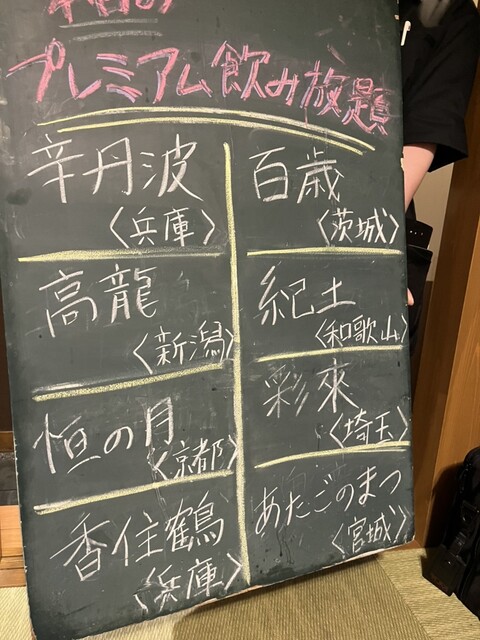 本日の
プレミアム飲み放題
辛丹波
〈兵庫〉
百歳
〈茨城〉
高龍
〈新潟〉
紀土
〈和歌山〉
恒の月
〈京都〉
彩來
〈埼玉〉
香住鶴
〈兵庫〉
あたごのまつ
〈宮城〉